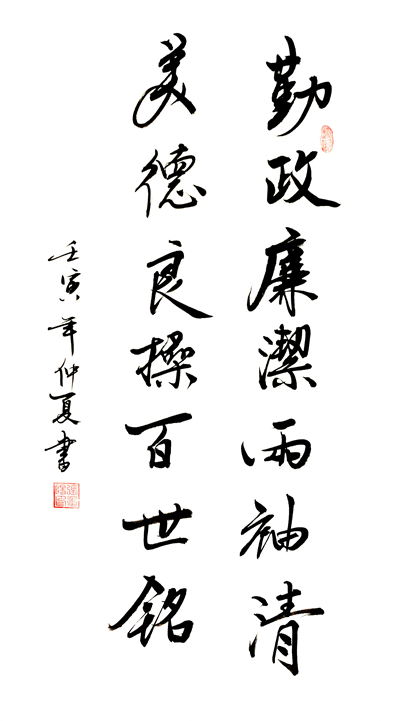 勤政廉潔兩袖清
美德良操百世銘
壬寅年仲夏書